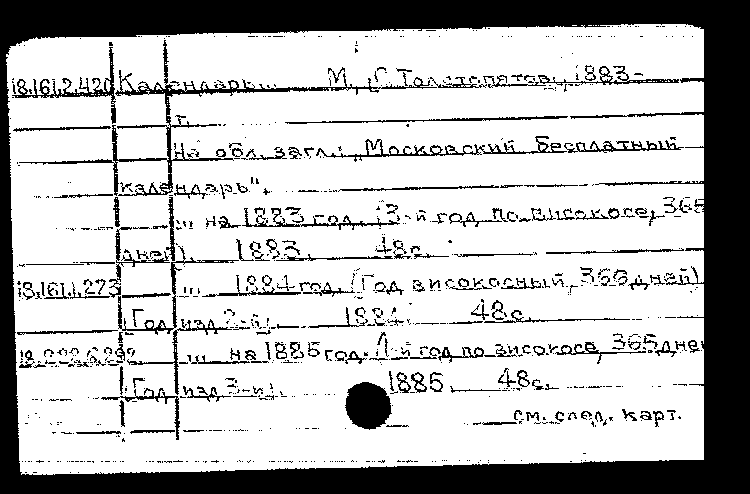 18.161.2.420 Календарь... М., С. Толстопятов, 1883-
г.
На обл. загл.: „Московский бесплатный
календарь".
... на 1883 год. (3-й год по високосе, 365
дней). 1883. 48с.
18.161.1.273 ... 1884 год. (Год високосный, 366 дней)
(Год изд 2-й). 1884. 48с.
18.222.6.292. ... на 1885 год. 1-й год по високосе, 365 дней
(Год изд 3-й). 1885. 48с.
см. след. карт.